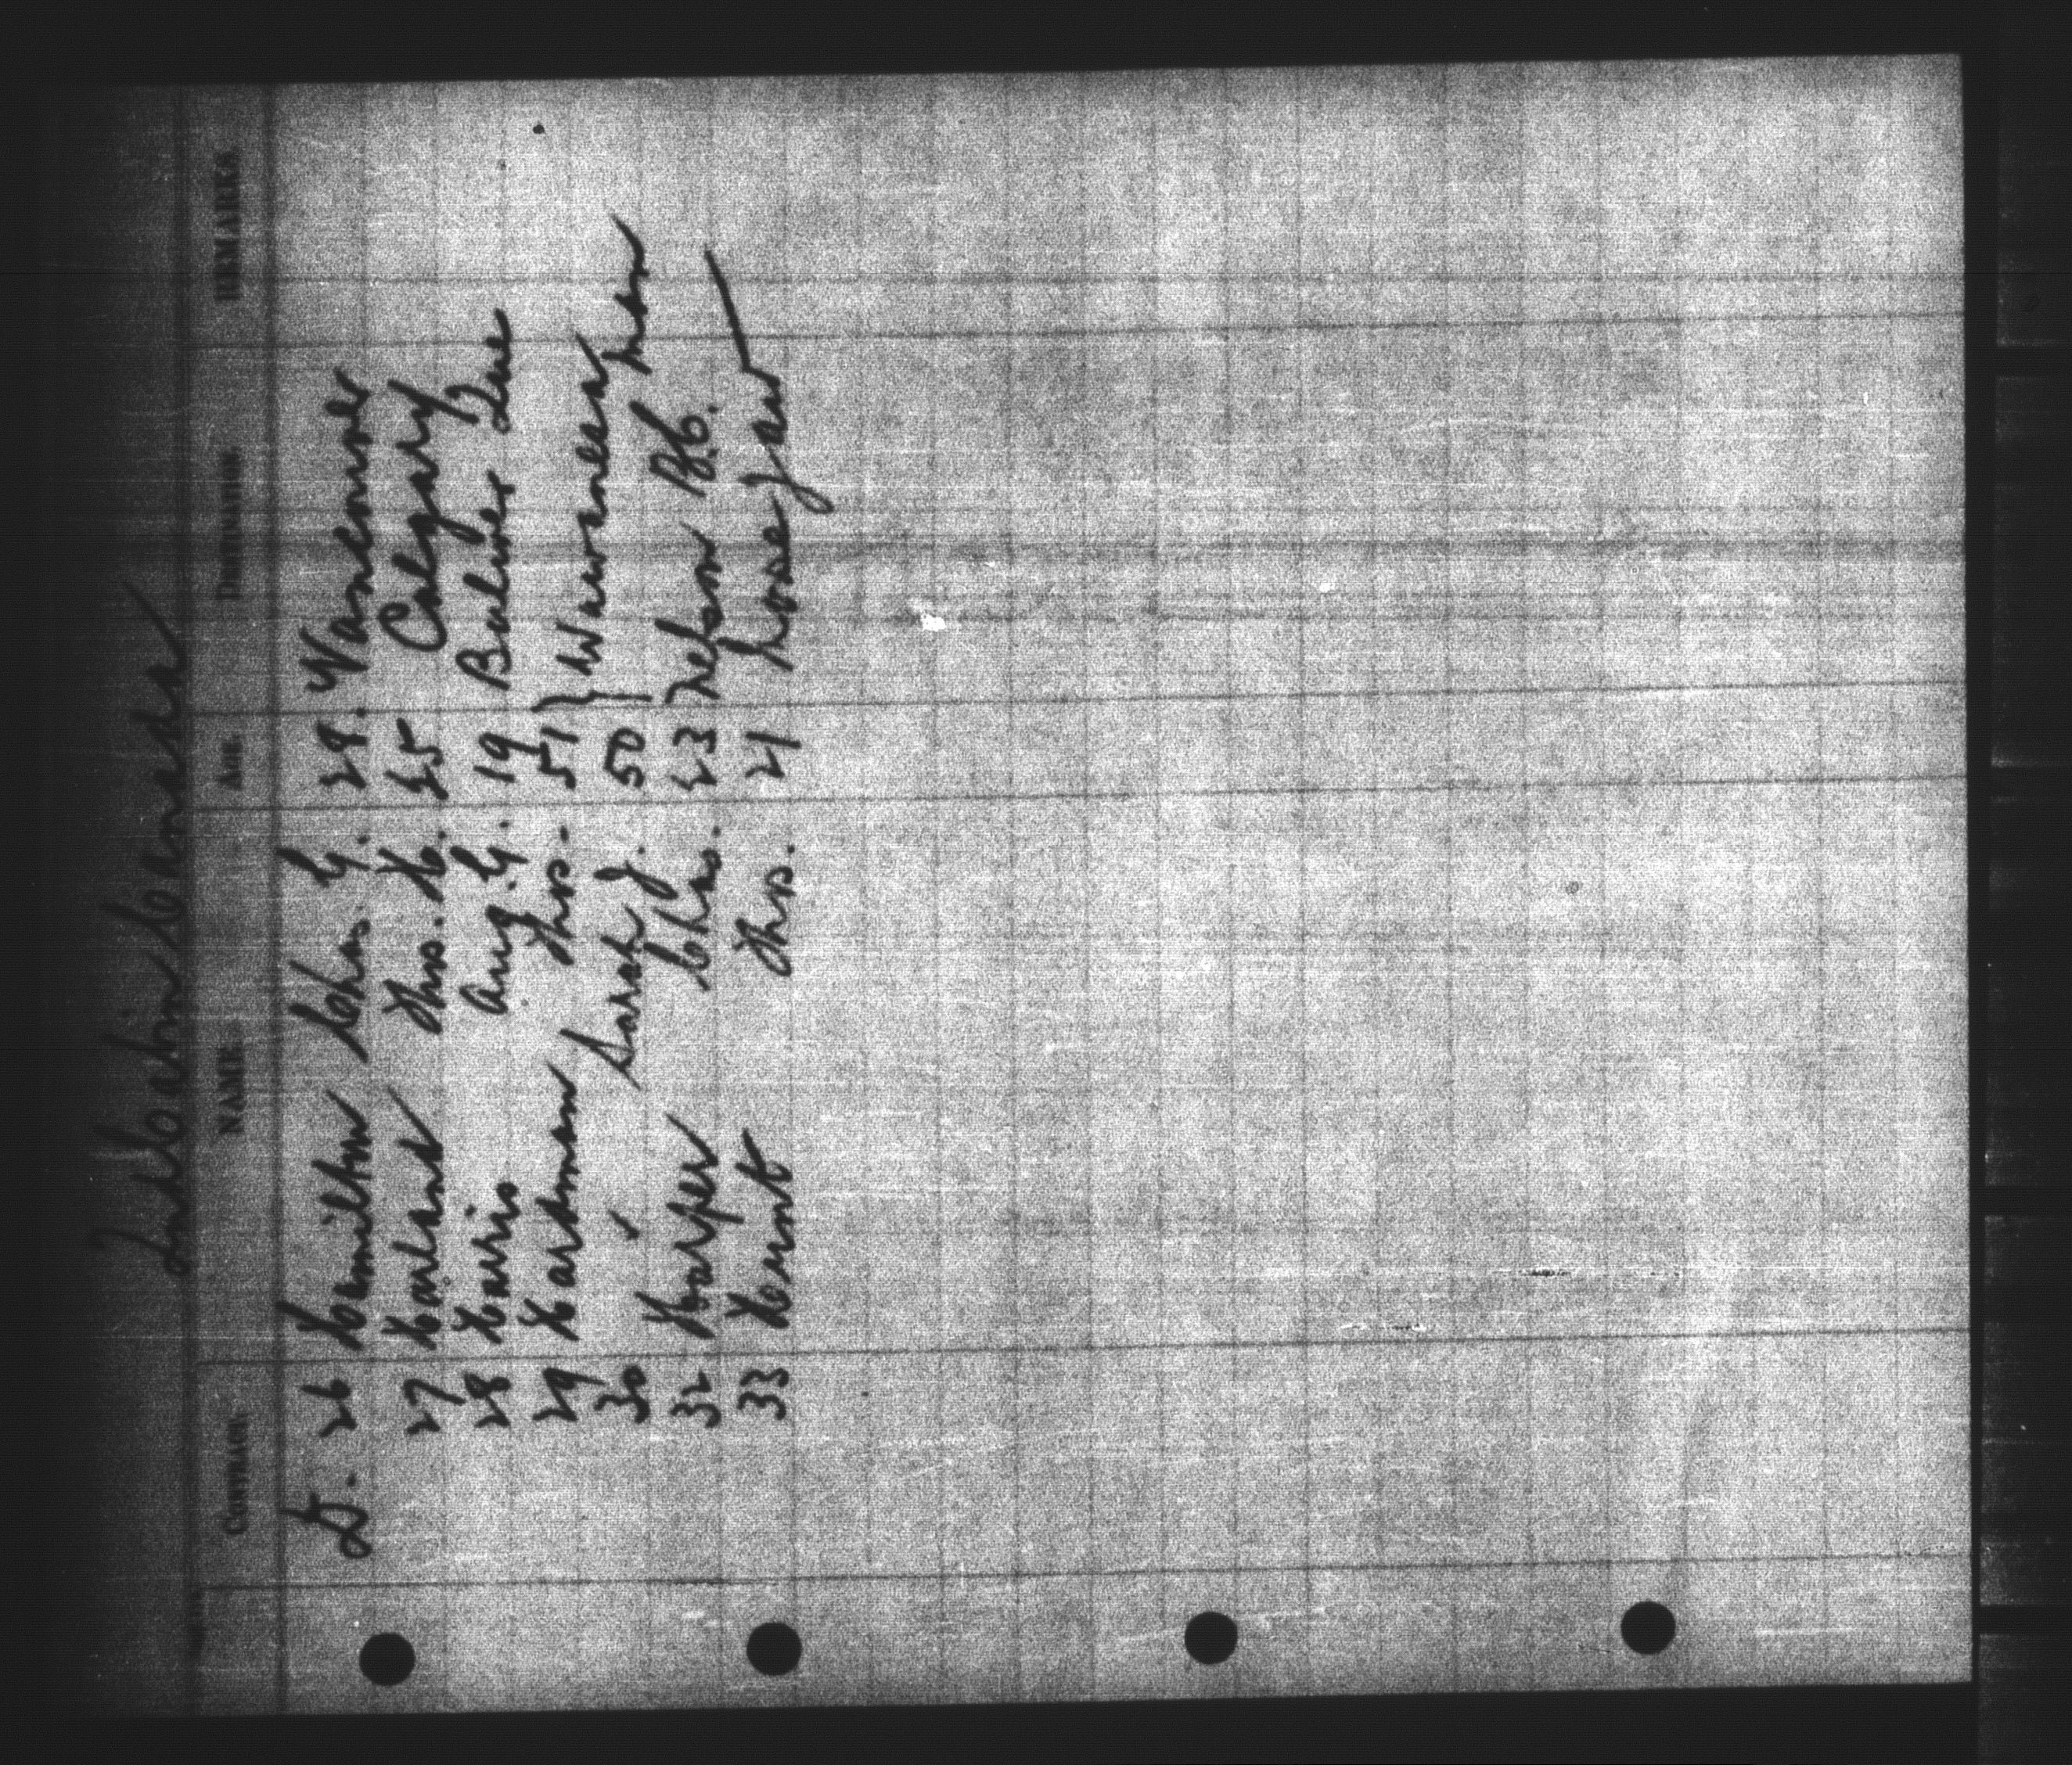 2nd Cabin Canada
CONTRACT. NAME. AGE. DESTINATION. REMARKS.
D. 26 Hamilton Chas. G. 28. Vancouver
27 Harland Thos. H. 25 Calgary
28 Harris Aug. G. 19 Bulwer Que
29 Hardman Thos. 51 } Wawanesa
30 " Sarah J. 50 } Man
32 Harper Chas. 23 Nelson B.C.
33 Hunt Thos. 21 Moose Jaw